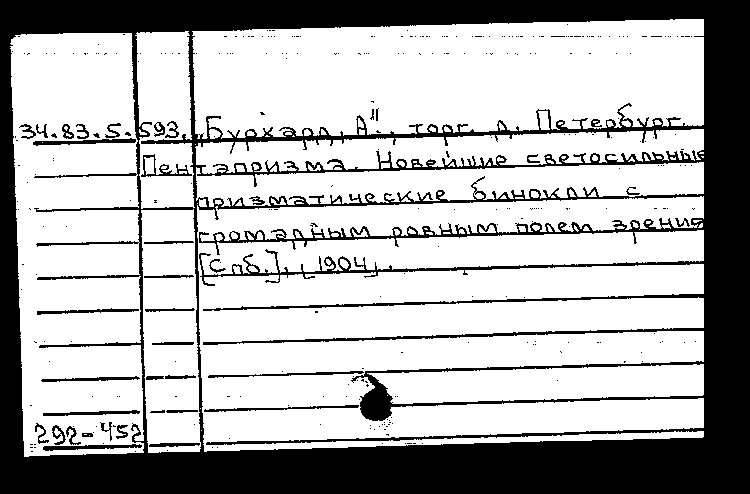 34.83.5.593. „Бурхард, А", торг. д. Петербург.
Пентапризма. Новейшие светосильные
призматические бинокли с
громадным ровным полем зрения
[Спб.], [1904].
292-452